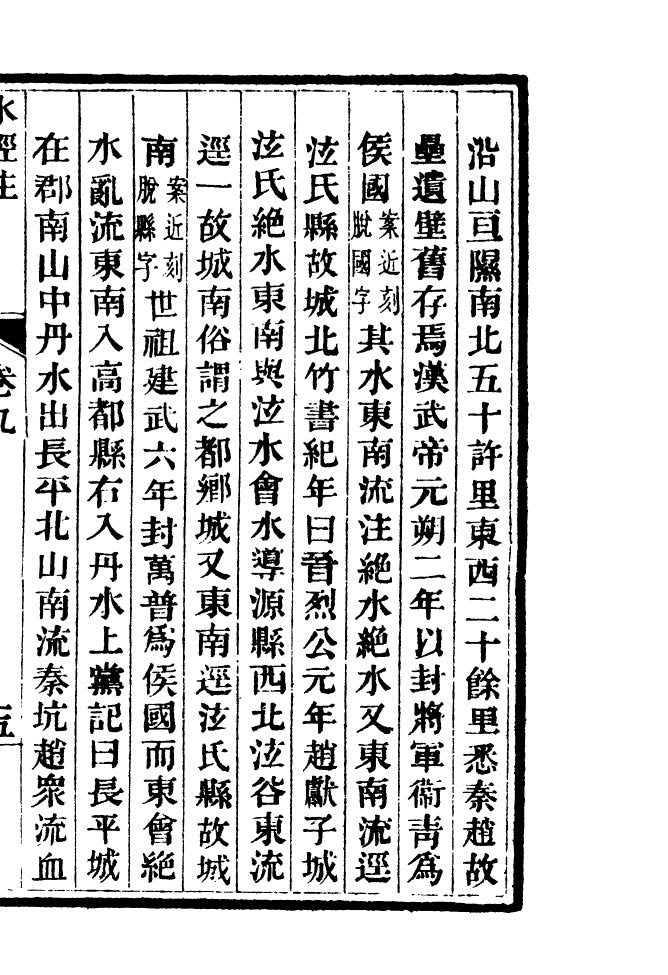 沿山亘隰南北五十許里東西二十餘里悉秦趙故
壘遺壁舊存焉漢武帝元朔二年以封將軍衞靑爲
侯國案近刻脫國字其水東南流注絶水絶水又東南流逕
泫氏縣故城北竹書紀年曰晉烈公元年趙獻子城
泫氏絶水東南與泫水會水導源縣西北泫谷東流
逕一故城南俗謂之都鄉城又東南逕泫氏縣故城
南案近刻脫縣字世祖建武六年封萬普爲侯國而東會絶
水亂流東南入高都縣右入丹水上黨記曰長平城
在郡南山中丹水出長平北山南流秦坑趙眾流血
水經注
卷九
五